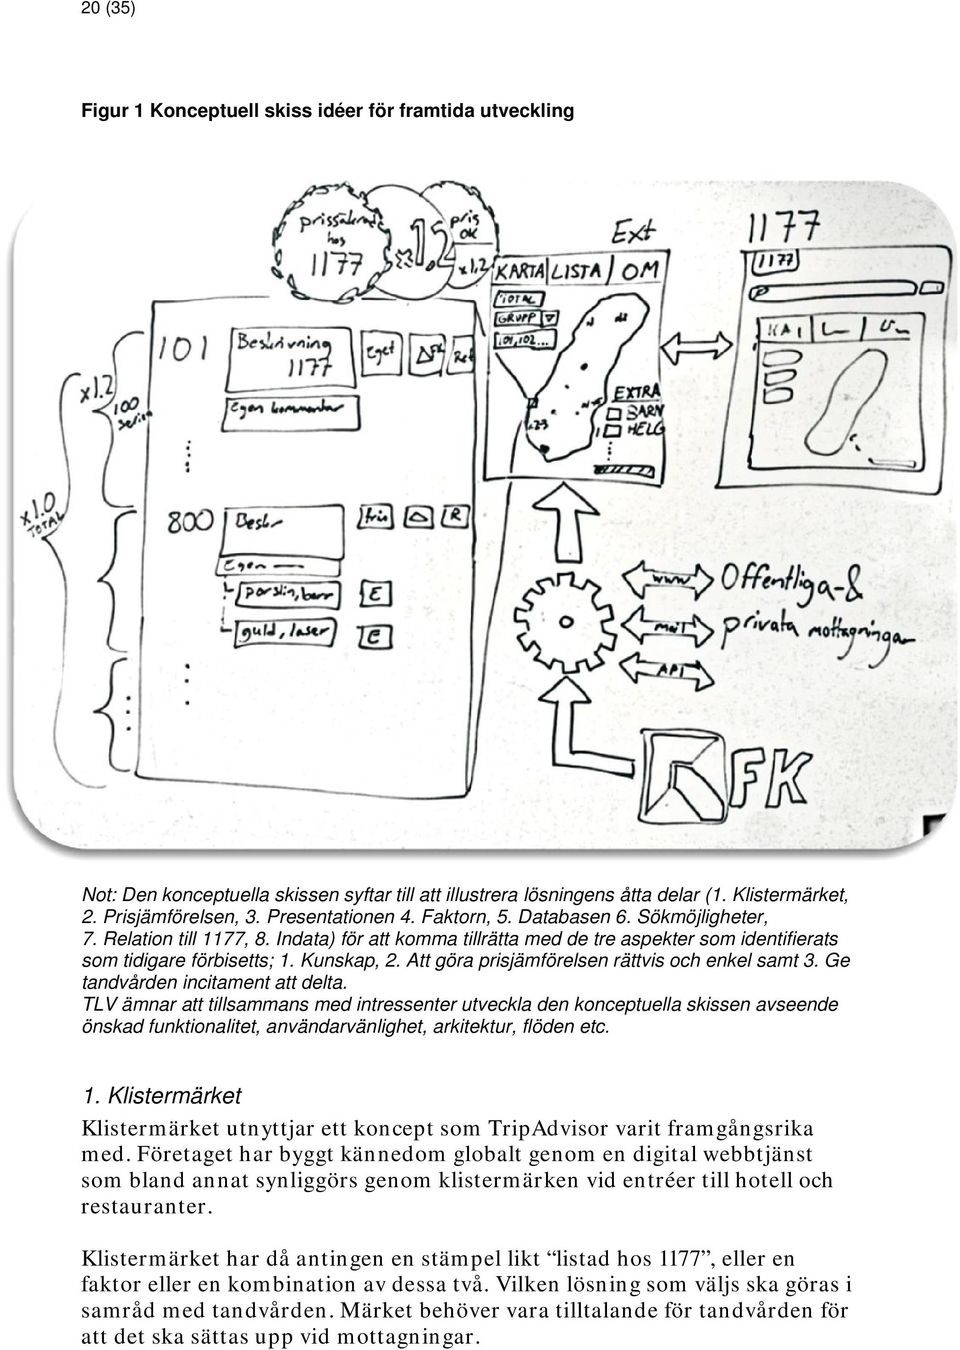 20 (35)
Figur 1 Konceptuell skiss idéer för framtida utveckling
prissäkrad
hos
1177
x1,2
pris
OK
x1,2
Ext
1177
KARTA LISTA OM
1177
TOTAL
GRUPP
101, 102...
101
Beskrivning
1177
Eget
ΔFK
Ret
Egen kommentar
x1.2
100
serie
EXTRA
BARN
HELG
x1.0
TOTAL
800
Beskr
R
Egen
porslin, barr
E
guld, laser
E
www
mail
API
Offentliga- &
privata mottagningar
FK
Not: Den konceptuella skissen syftar till att illustrera lösningens åtta delar (1. Klistermärket,
2. Prisjämförelsen, 3. Presentationen 4. Faktorn, 5. Databasen 6. Sökmöjligheter,
7. Relation till 1177, 8. Indata) för att komma tillrätta med de tre aspekter som identifierats
som tidigare förbisetts; 1. Kunskap, 2. Att göra prisjämförelsen rättvis och enkel samt 3. Ge
tandvården incitament att delta.
TLV ämnar att tillsammans med intressenter utveckla den konceptuella skissen avseende
önskad funktionalitet, användarvänlighet, arkitektur, flöden etc.
1. Klistermärket
Klistermärket utnyttjar ett koncept som TripAdvisor varit framgångsrika
med. Företaget har byggt kännedom globalt genom en digital webbtjänst
som bland annat synliggörs genom klistermärken vid entréer till hotell och
restauranter.
Klistermärket har då antingen en stämpel likt “listad hos 1177”, eller en
faktor eller en kombination av dessa två. Vilken lösning som väljs ska göras i
samråd med tandvården. Märket behöver vara tilltalande för tandvården för
att det ska sättas upp vid mottagningar.